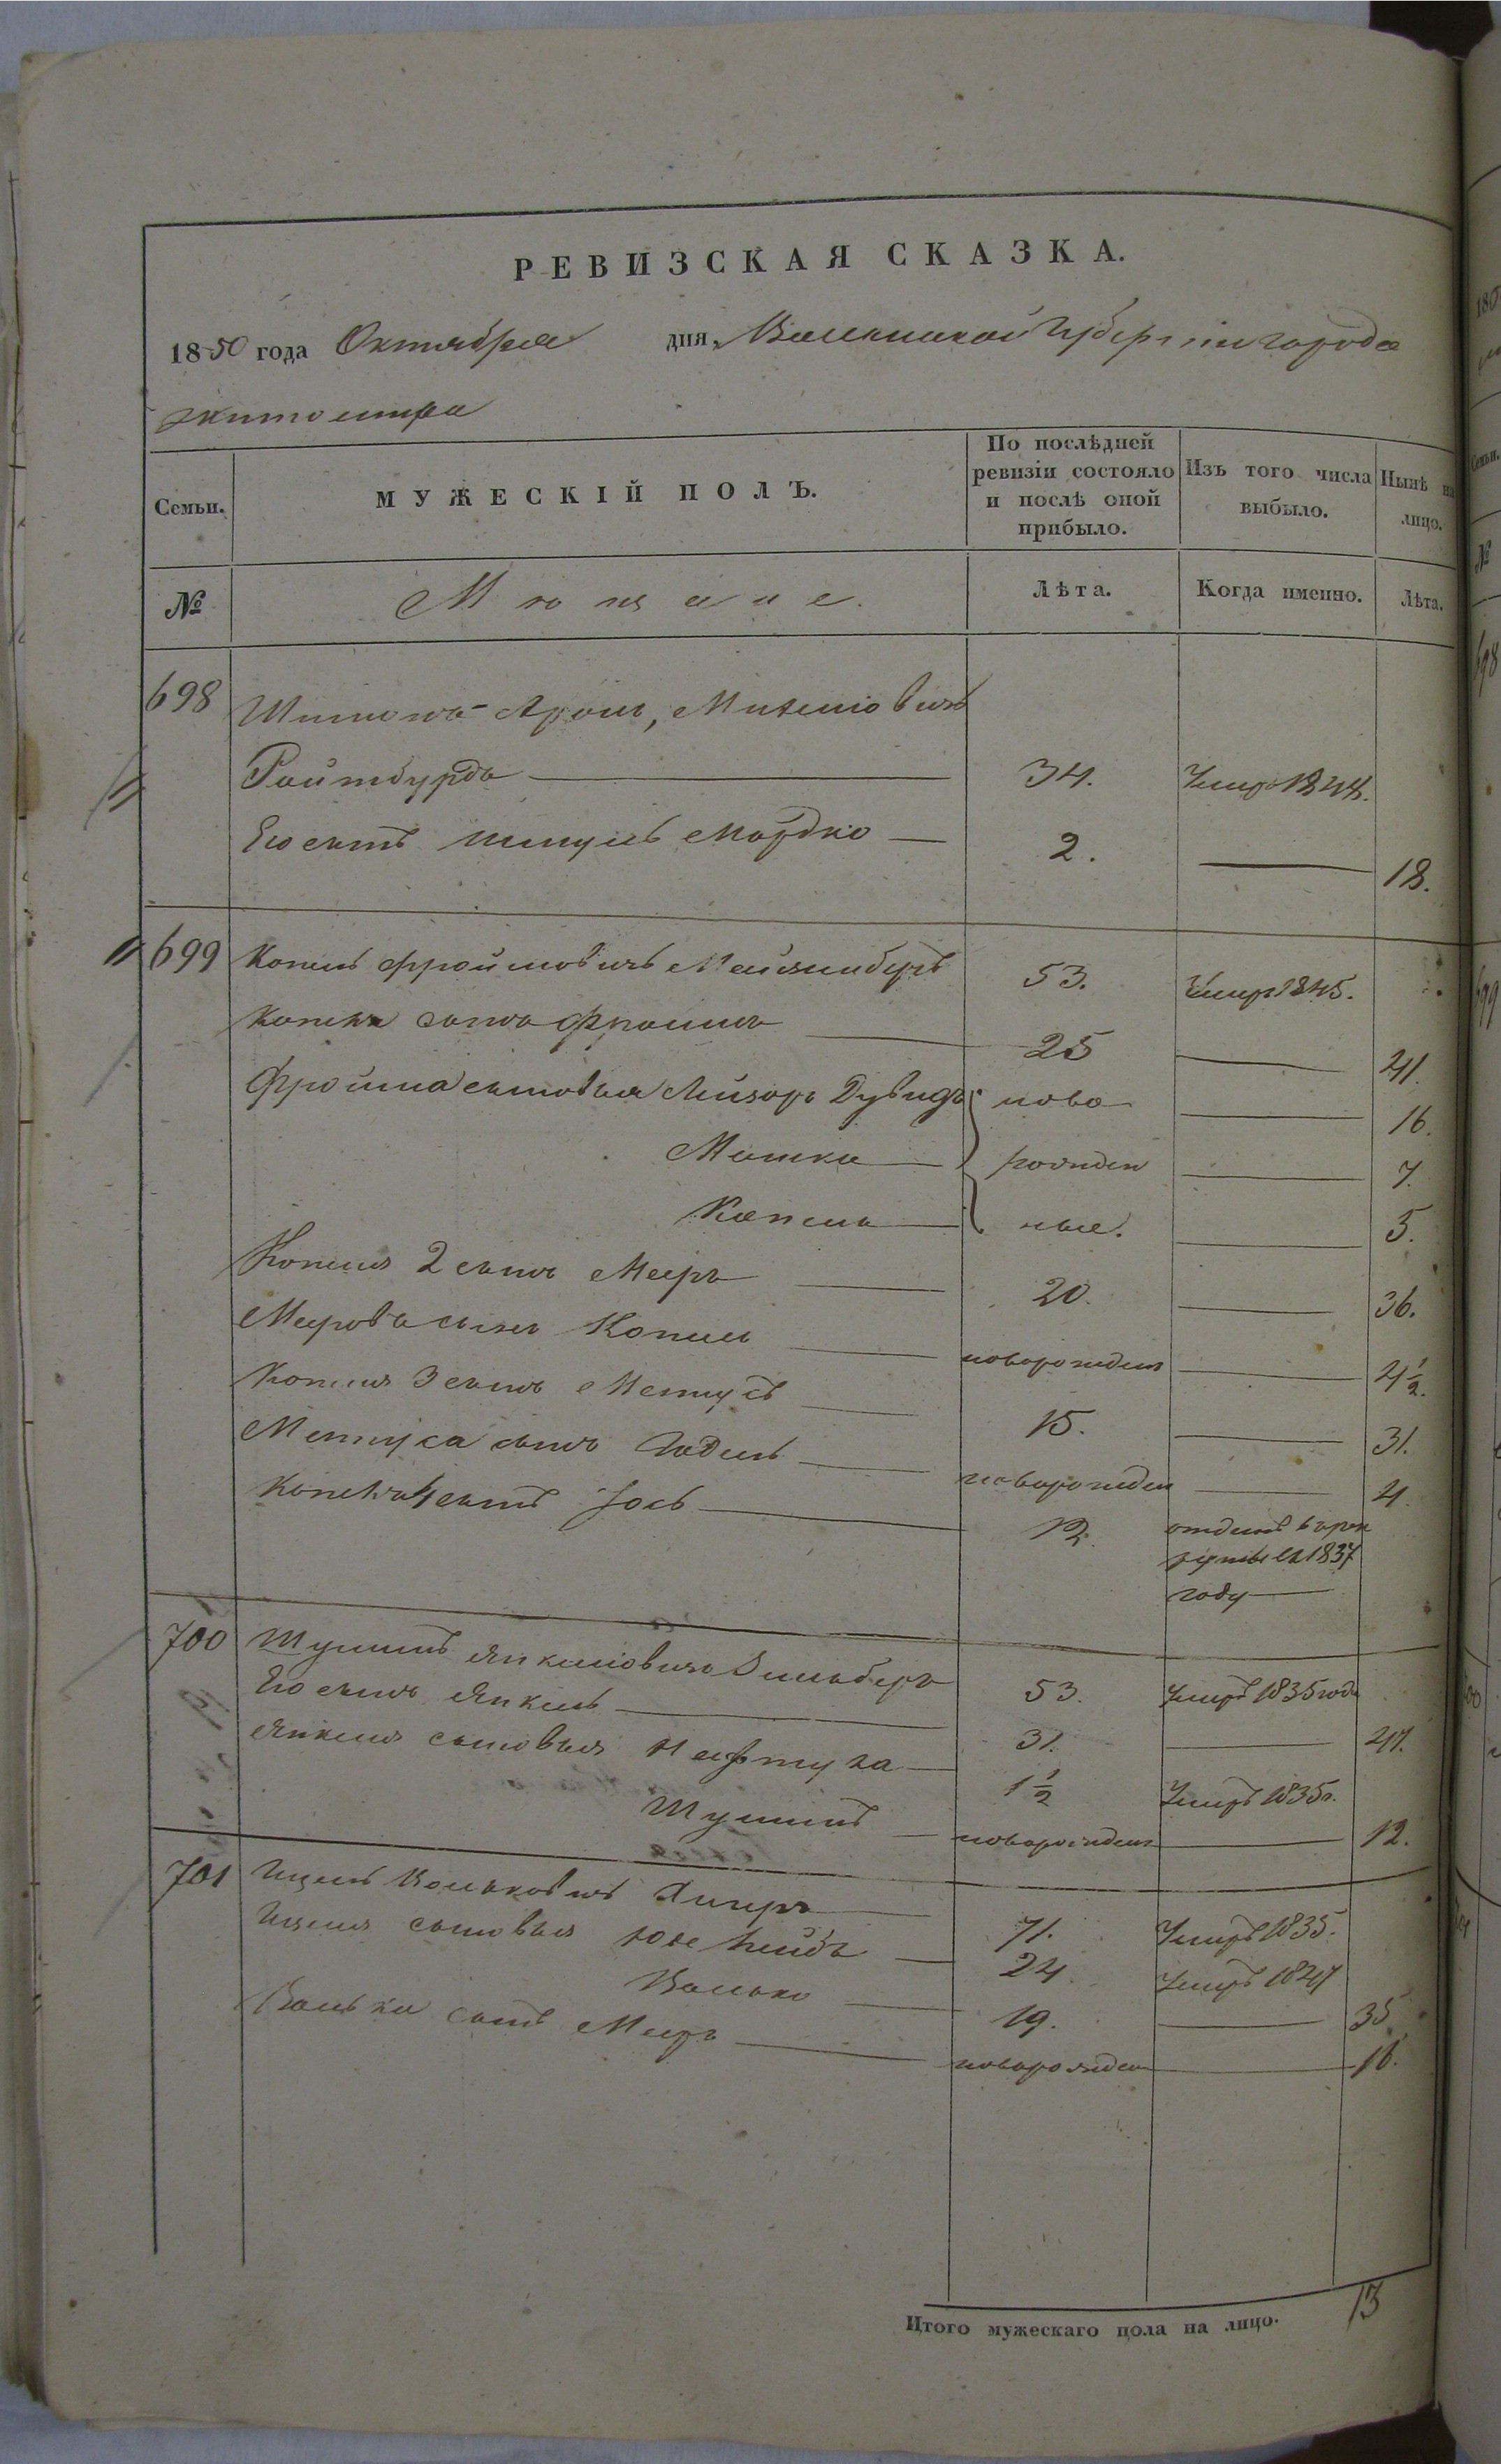 РЕВИЗСКАЯ СКАЗКА.
1850 года Октября дня, Волынской Губерніи города
Житомира
Семьи.
МУЖЕСКІЙ ПОЛЪ.
По послѣдней ревизіи состояло и послѣ оной прибыло.
Изъ того числа выбыло.
Нынѣ на лицо.
№
Мѣщане.
Лѣта.
Когда именно.
Лѣта.
698 Шимонъ-Аронъ,
Ройтбурдъ 34. Умеръ 1844.
Его сынъ Шмуль Мордко 2. 18.
699 Копель Фроймовичъ 53. Умеръ 1845.
Копеля сынъ Фроимъ 25 41.
Фройма сыновья Лейзоръ Дувидъ ново 16.
Мошко рожден 7.
Копель ные. 5.
Копеля 2 сынъ Мееръ 20. 36.
Меера сынъ Копель новорожден 4½.
Копеля 3 сынъ 15. 31.
сынъ Годель новорожден 4.
Копеля 4 сынъ Іось 12. отданъ в рек
руты въ 1837
году
700 Шулимъ Янкелевичъ Зильберъ 53. Умеръ 1835 года
Его сынъ Янкель 31. 47.
Янкеля сыновья Нафтула 1½ Умеръ 1835г.
Шулимъ новорожден 12.
701 Ицель Вольковичъ 71. Умеръ 1835.
Ицеля сыновья Лейбъ 24. Умеръ 1847
Волько 19. 35
Волька сынъ Мееръ новорожден 16.
Итого мужескаго пола на лицо. 13